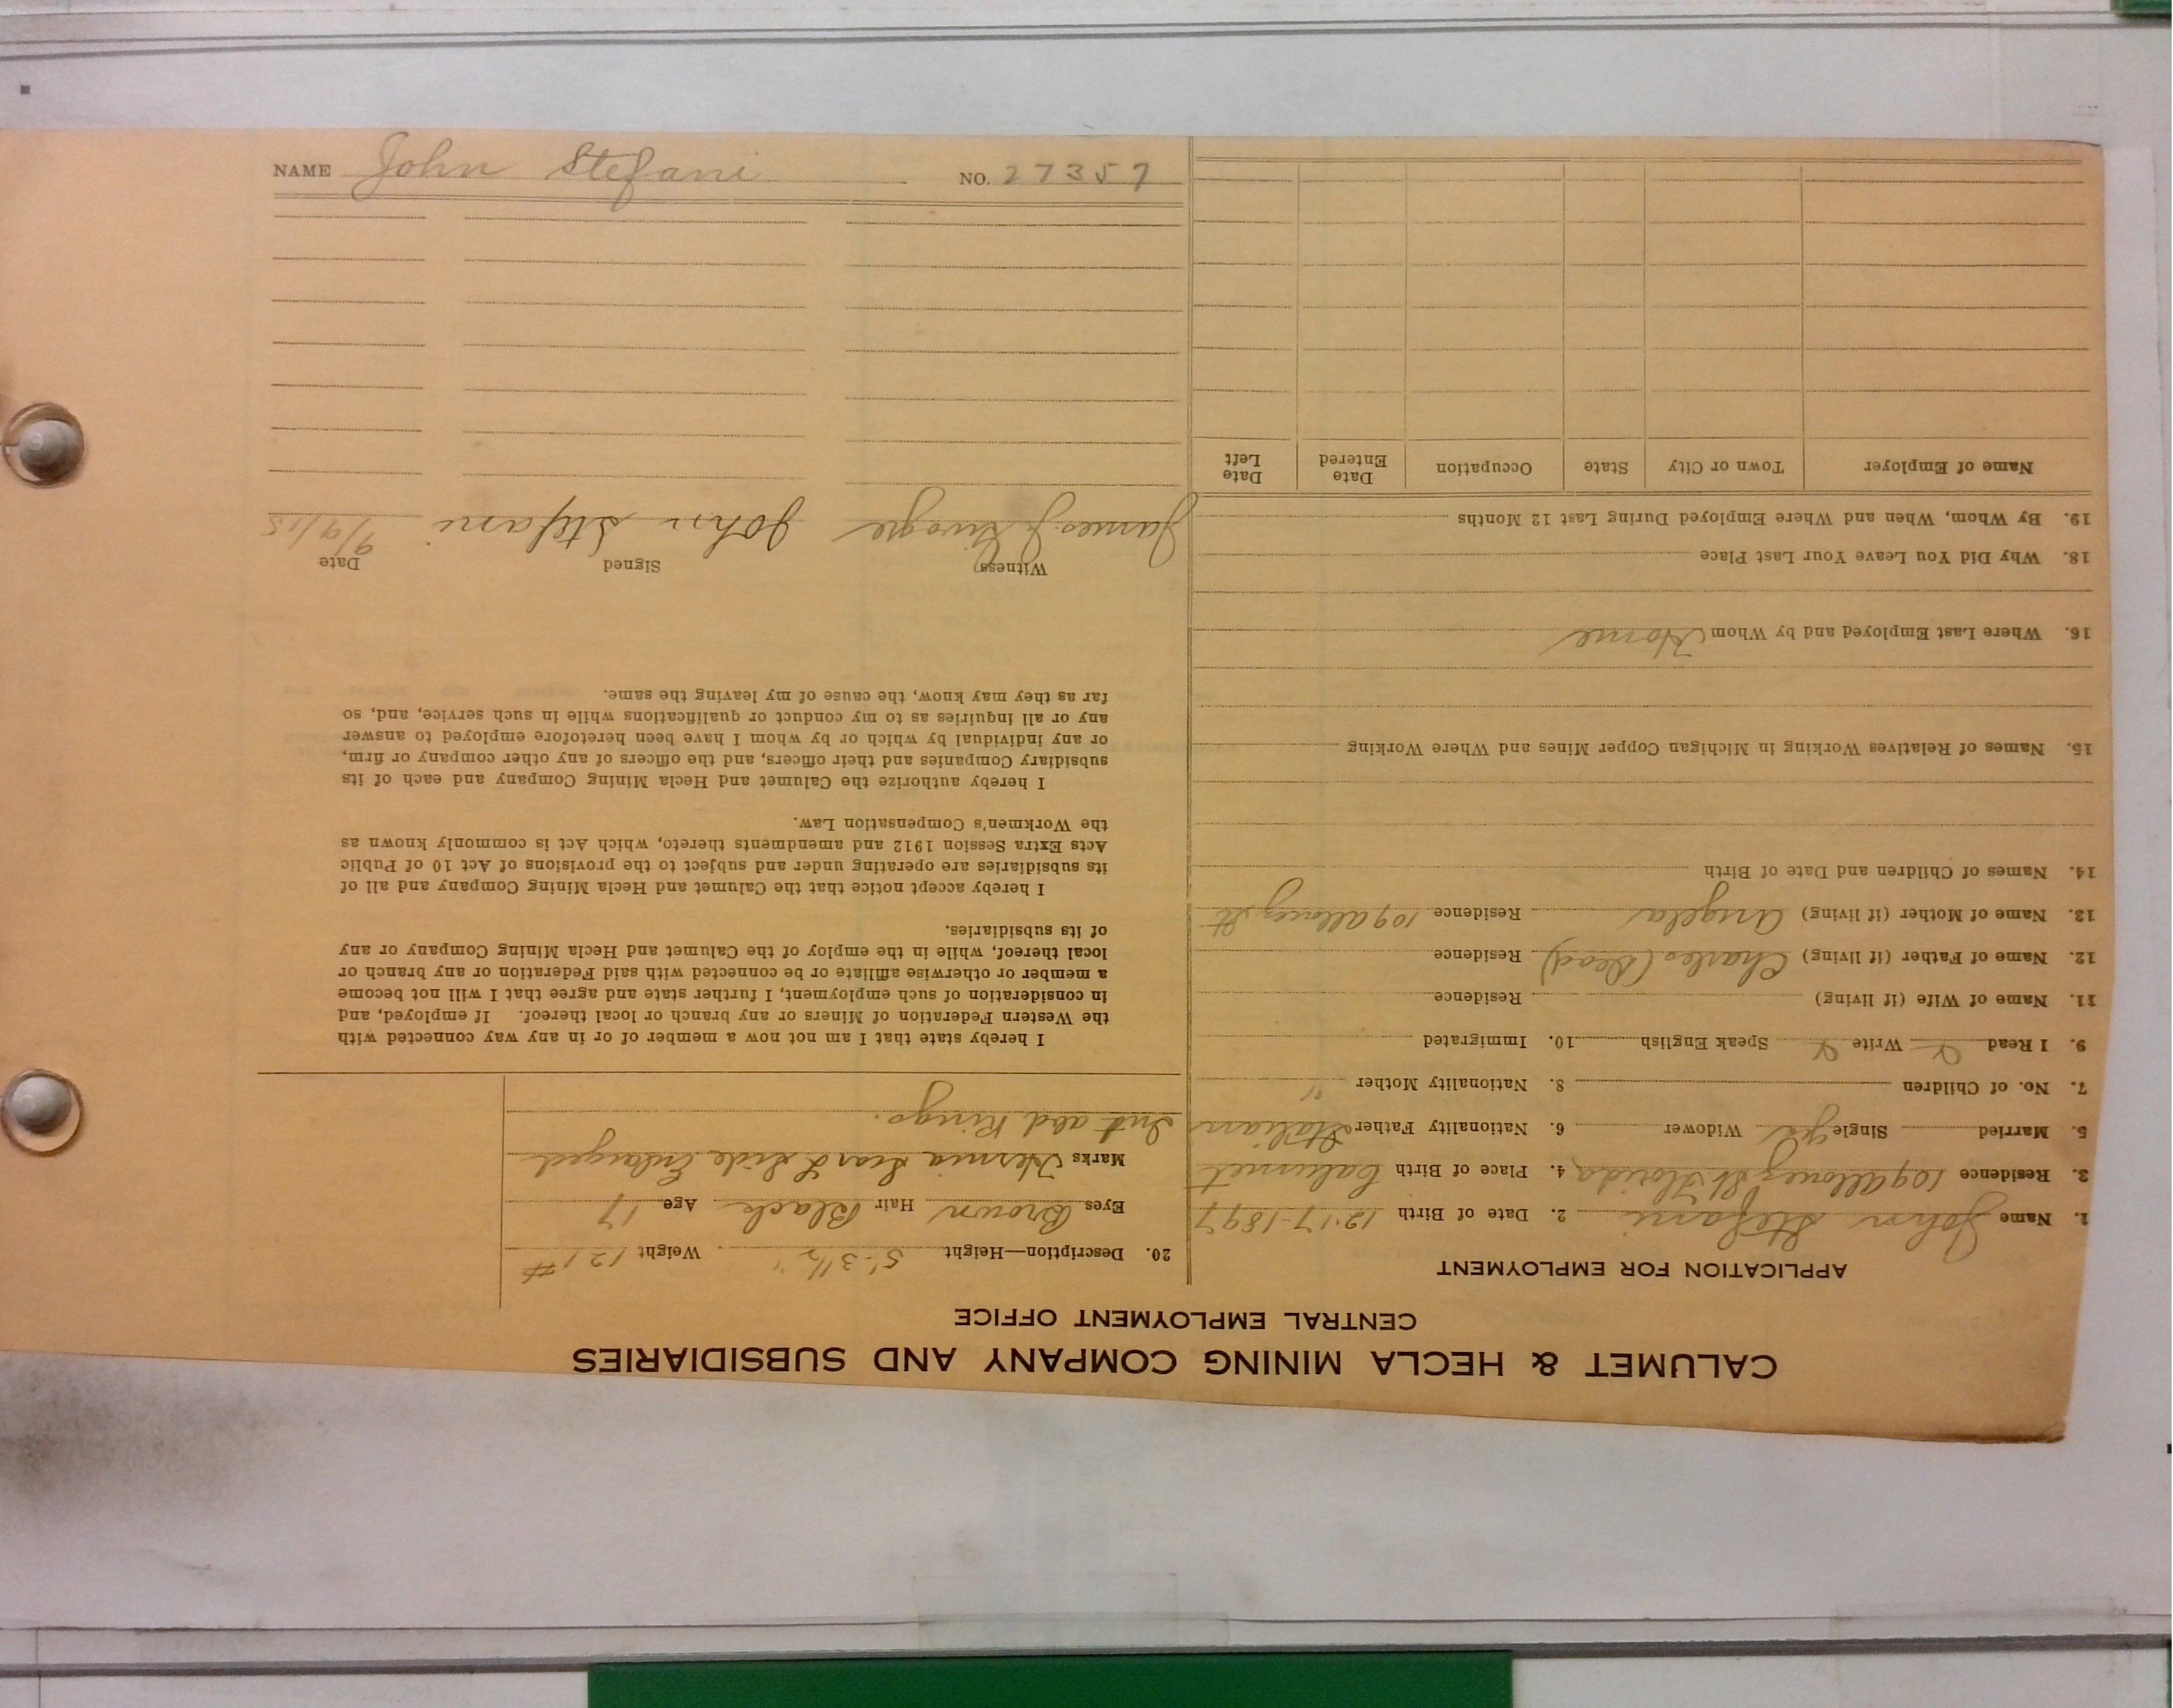 NAME John Stefani NO. 27357
CALUMET & HECLA MINING COMPANY AND SUBSIDIARIES
CENTRAL EMPLOYMENT OFFICE
APPLICATION FOR EMPLOYMENT
1. Name John Stefani 2. Date of Birth 12-17-1897
3. Residence 109 Allouez St Florida 4. Place of Birth Calumet
5. Married Single yes Widower 6. Nationality Father Italian
7. No. of Children 8. Nationality Mother "
9. I Read Write Speak English 10. Immigrated
11. Name of Wife (if living) Residence
12. Name of Father (if living) Charles (Dead) Residence
13. Name of Mother (if living) Angela Residence 109 Allouez St
14. Names of Children and Date of Birth
15. Names of Relatives Working in Michigan Copper Mines and Where Working
16. Where Last Employed and by Whom Home
18. Why Did You Leave Your Last Place
19. By Whom, When and Where Employed During Last 12 Months
Name of Employer Town or City State Occupation Date Entered Date Left
20. Description—Height 5'-3 1/2" Weight 121#
Eyes Brown Hair Black Age 17
Marks Hernia Scar L Side Enlarged
Int abd Rings.
I hereby state that I am not now a member of or in any way connected with
the Western Federation of Miners or any branch or local thereof. If employed, and
in consideration of such employment, I further state and agree that I will not become
a member or otherwise affiliate or be connected with said Federation or any branch or
local thereof, while in the employ of the Calumet and Hecla Mining Company or any
of its subsidiaries.
I hereby accept notice that the Calumet and Hecla Mining Company and all of
its subsidiaries are operating under and subject to the provisions of Act 10 of Public
Acts Extra Session 1912 and amendments thereto, which Act is commonly known as
the Workmen's Compensation Law.
I hereby authorize the Calumet and Hecla Mining Company and each of its
subsidiary Companies and their officers, and the officers of any other company or firm,
or any individual by which or by whom I have been heretofore employed to answer
any or all inquiries as to my conduct or qualifications while in such service, and, so
far as they may know, the cause of my leaving the same.
Witness Signed Date
James J. John Stefani 9/9/15